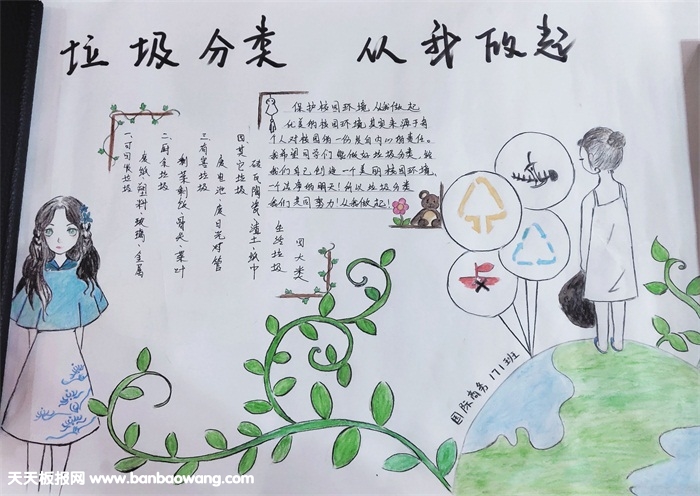 垃圾分类 从我做起
保护校园环境,从我做起
优美的校园环境,其实来源于每
个人对校园的一份发自内心的责任。
我希望同学们能做好垃圾分类,给
我们自己创建一个美丽校园环境,
一个洁净的明天!所以垃圾分类
我们是同努力!从我做起!
生活垃圾
四大类
一、可回收垃圾
废纸、塑料、玻璃、金属
二、厨余垃圾
剩菜剩饭、骨头、菜叶
三、有害垃圾
废电池、废日光灯管
四、其它垃圾
砖瓦陶瓷、渣土、纸巾
国际商务171班
天天板报网 www.banbaowang.com